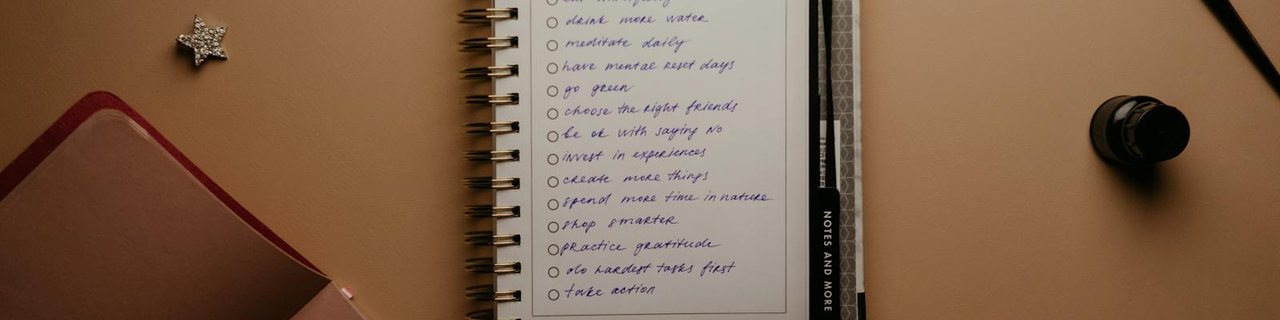 drink more water
meditate daily
have mental reset days
go green
choose the right friends
be ok with saying NO
invest in experiences
create more things
spend more time in nature
shop smarter
practice gratitude
do hardest tasks first
take action
NOTES AND MORE